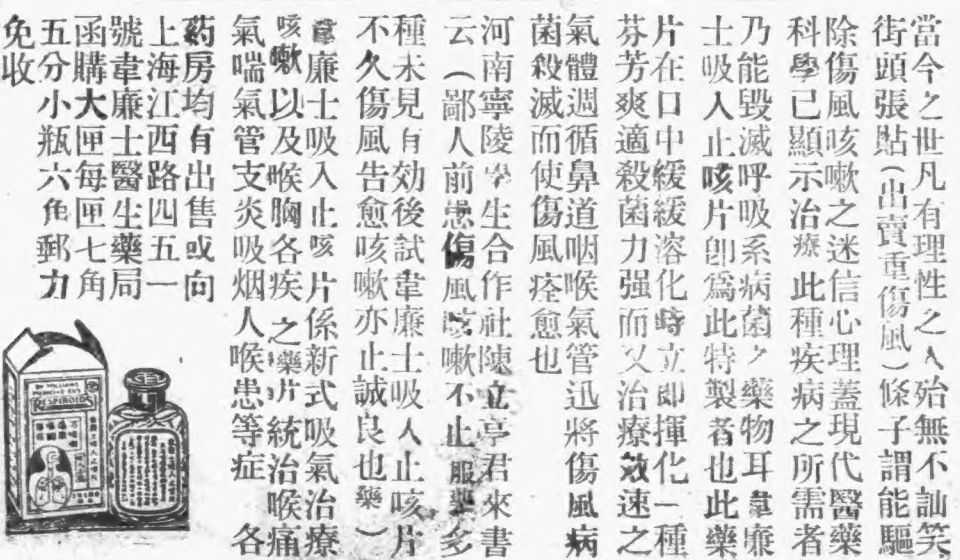 當今之世凡有理性之人殆無不訕笑
街頭張貼(出賣重傷風)條子謂能驅
除傷風咳嗽之迷信心理蓋現代醫藥
科學已顯示治療此種疾病之所需者
乃能毀滅呼吸系病菌之藥物耳韋廉
士吸入止咳片卽爲此特製者也此藥
片在口中緩緩溶化時立即揮化一種
芬芳爽適殺菌力强而又治療效速之
氣體週循鼻道咽喉氣管迅將傷風病
菌殺滅而使傷風痊愈也
河南寧陵學生合作社陳立亭君來書
云(鄙人前患傷風咳嗽不止服藥多
種未見有効後試韋廉士吸入止咳片
不久傷風告愈咳嗽亦止誠良也藥)
韋廉士吸入止咳片係新式吸氣治療
咳嗽以及喉胸各疾之藥片統治喉痛
氣喘氣管支炎吸烟人喉患等症 各
葯房均有出售或向
上海江西路四五一
號韋廉士醫生藥局
函購大匣每匣七角
五分小瓶六角郵力
免收
DR WILLIAMS
MEDICINE CO'S
RESPIROIDS